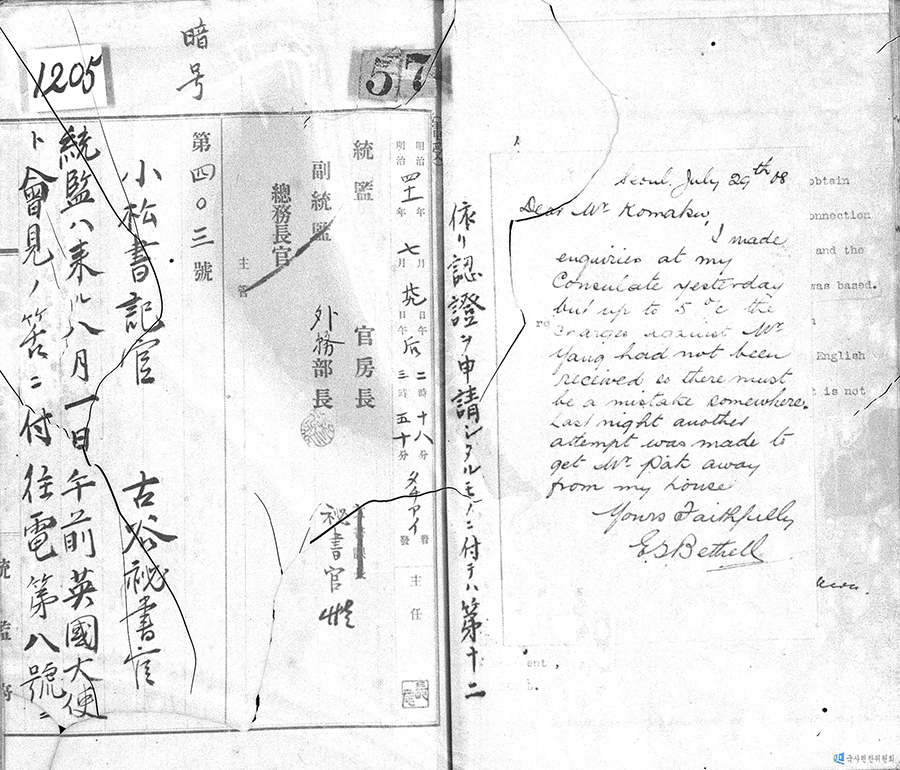 暗号
1205
57
明治四十一年七月廿九日午后二時十八分
明治 年 月 日午后三時五十分
統監
副統監
總務長官
官房長
外務部長
秘書官
主任
主管
第四〇三號
小松書記官 古谷秘書官
統監ハ来ル八月一日午前英國大使
ト會見ノ筈ニ付往電第八號ニ
依リ認證ヲ申請シタルモノニ付テハ第十二
Seoul, July 29th 08
Dear Mr Komatsu,
I made
enquiries at my
Consulate yesterday
but up to 5 o/c the
charges against Mr
Yang had not been
received so there must
be a mistake somewhere.
Last night another
attempt was made to
get Mr Pak away
from my house
Yours Faithfully
E T Bethell
obtain
connection
and the
was based.
re
English
t is not
ent,
국사편찬위원회